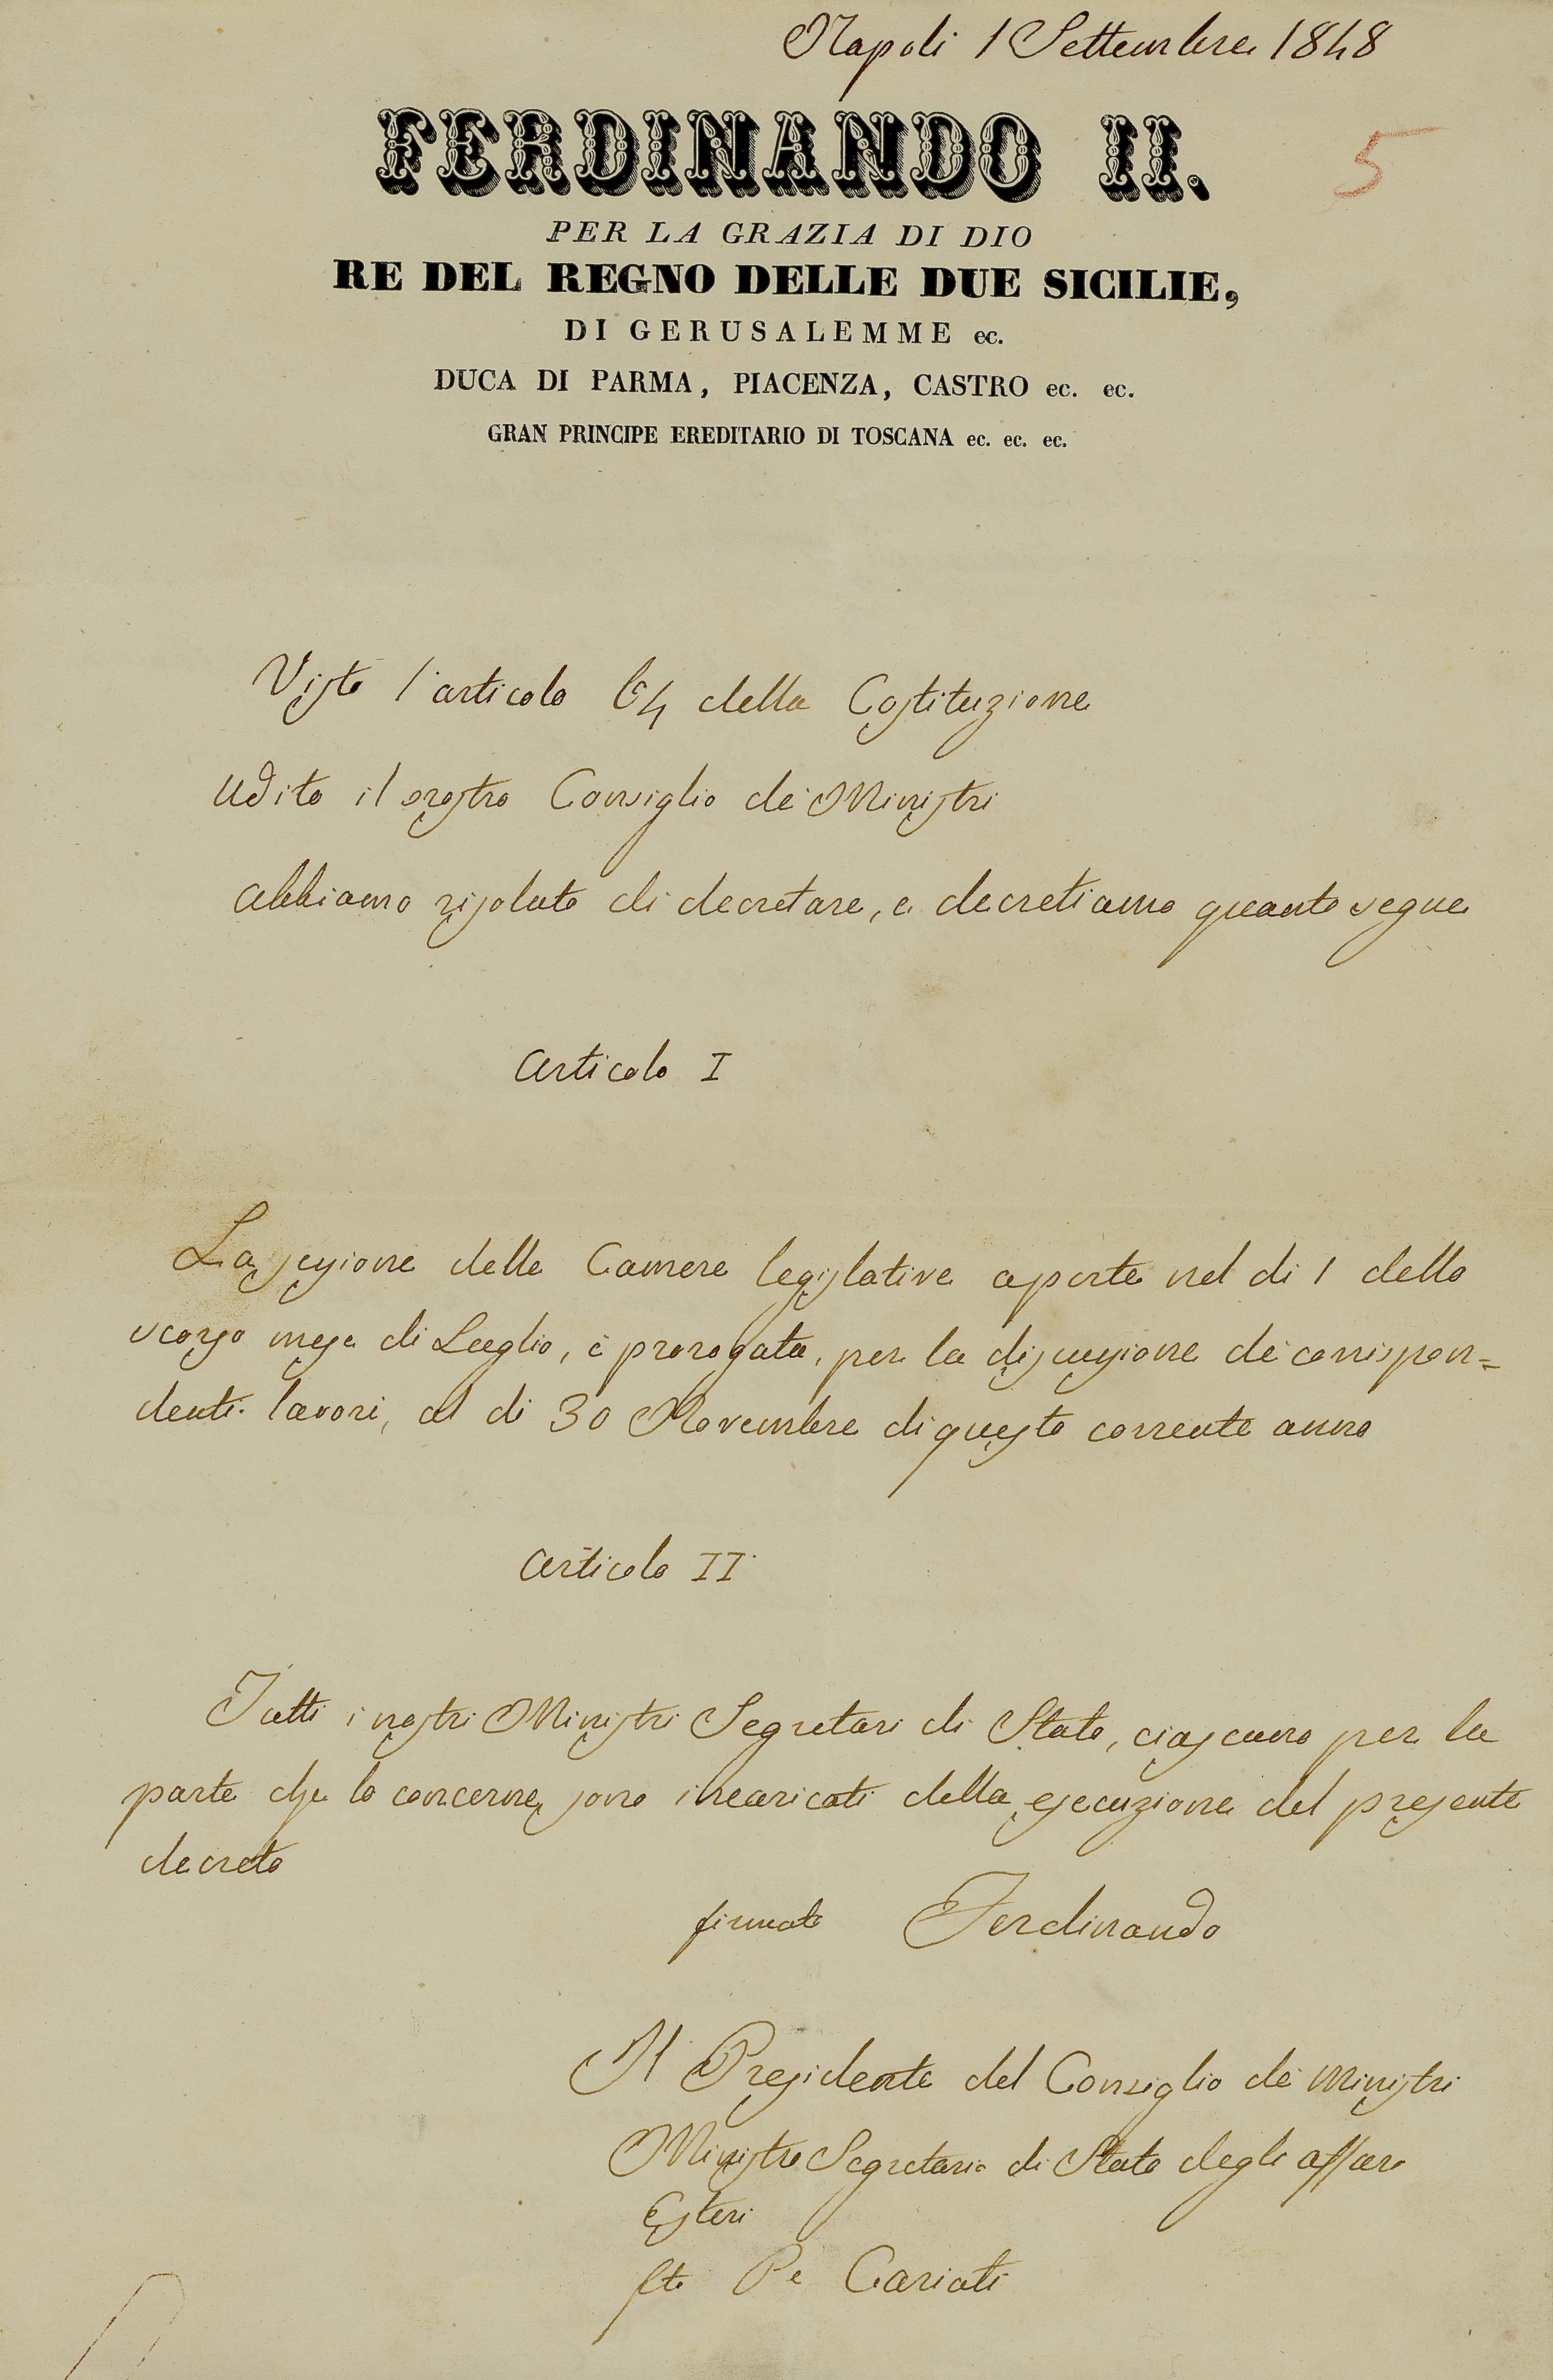 Napoli 1 Settembre 1848
FERDINANDO II.
5
PER LA GRAZIA DI DIO
RE DEL REGNO DELLE DUE SICILIE,
DI GERUSALEMME ec.
DUCA DI PARMA, PIACENZA, CASTRO ec. ec.
GRAN PRINCIPE EREDITARIO DI TOSCANA ec. ec. ec.
Visto l'articolo 64 della Costituzione
Udito il nostro Consiglio de' Ministri
abbiamo risoluto di decretare, e decretiamo quanto segue
Articolo I
La sessione delle Camere legislative aperte nel dì 1 dello
scorso mese di Luglio, è prorogata, per la discussione de' corrispon=
denti lavori, al dì 30 Novembre di questo corrente anno
Articolo II
Tutti i nostri Ministri Segretari di Stato, ciascuno per la
parte che lo concerne, sono incaricati della esecuzione del presente
decreto
firmato Ferdinando
Il Presidente del Consiglio de' Ministri
Ministro Segretario di Stato degli affari
Esteri
fto Pe Cariati